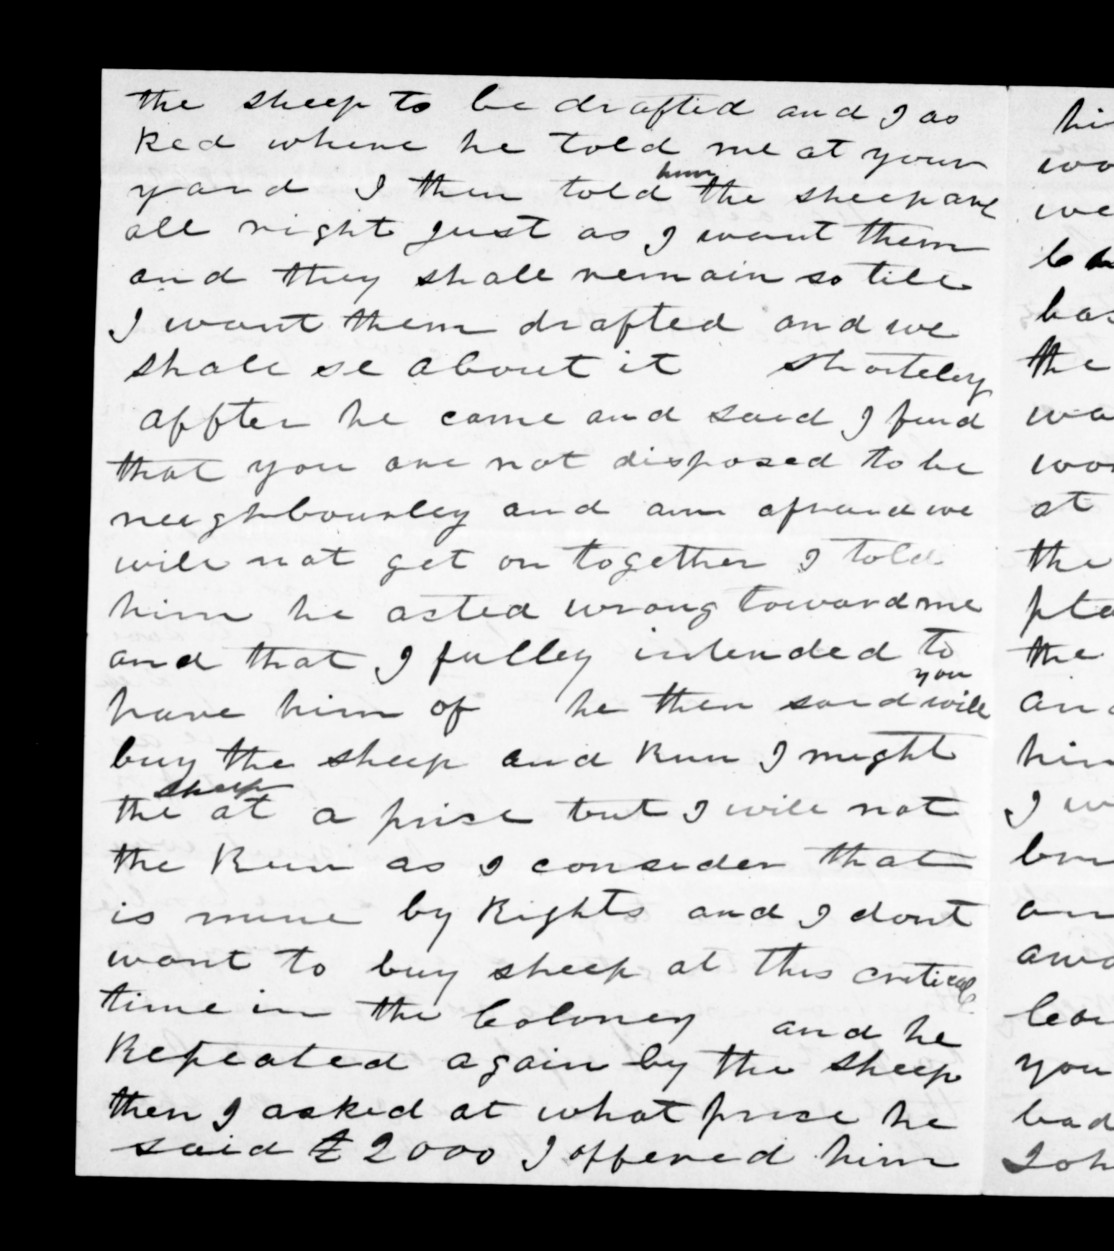 the sheep to be drafted and I as
ked where he told me at your
yard I then told him the sheep are
all right just as I want them
and they shall remain so till
I want them drafted and we
shall se about it shorteley
affter he came and said I find
that you are not disposed to be
neighbourley and am afraid we
will not get on together I told
him he acted wrong toward me
and that I fulley intended to
have him of he then said you will
buy the sheep and Run I might
the sheep at a prise but I will not
the Run as I consider that
is mine by Rights and I dont
want to buy sheep at this critical
time in the Coloney and he
Repeated again by the sheep
then I asked at what prise he
said £2000 I offered him
hi
wo
we
bas
the
wa
wo
st
the
pla
the
and
him
I w
an
awa
you
bad
Joh